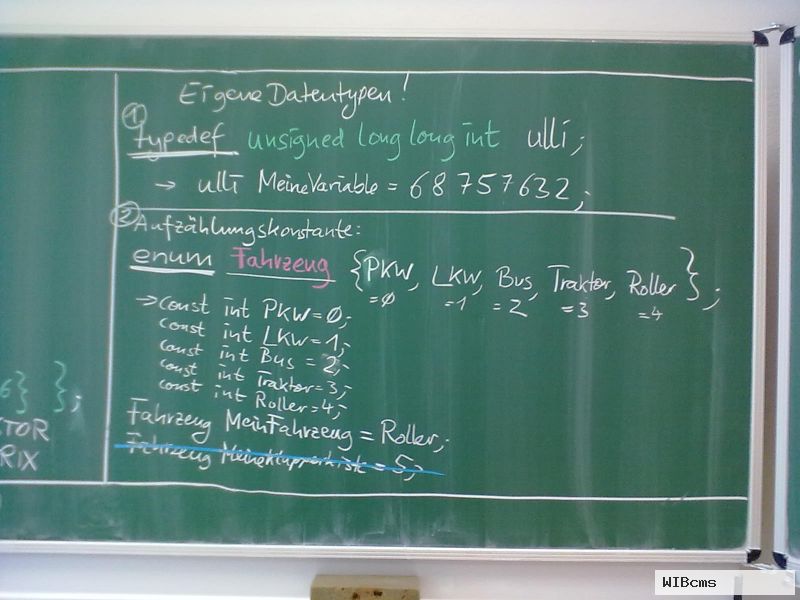 Eigene Datentypen!
① typedef unsigned long long int ulli;
→ ulli MeineVariable = 68 757632;
② Aufzählungskonstante:
enum Fahrzeug {PKW, LKW, Bus, Traktor, Roller};
=0 =1 =2 =3 =4
→ const int PKW=0;
const int LKW=1;
const int Bus = 2;
const int Traktor=3;
const int Roller=4;
Fahrzeug MeinFahrzeug = Roller;
Fahrzeug MeineKlapperkiste = 5;
6} };
TOR
RIX
WIBcms